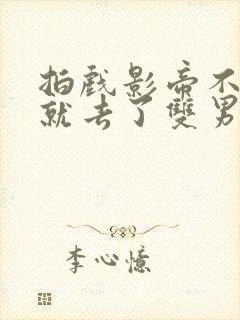 拍戲影帝不
就去了雙男
李心憶